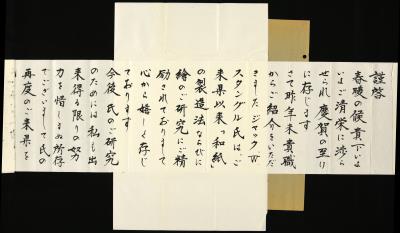 謹啓
春暖の候 貴下いよ
いよご清栄に渉ら
せられ慶賀の至り
に存じます
さて昨年末貴職
からご紹介をいただ
きました ジャック W
スタングル氏はご
来県以来っ和紙」
の製造法ならびに
絵のご研究にご精
励されておりまして
心から嬉しく存じ
ております
今後 氏のご研究
のためには私も出
来得る限りの努
力を惜しまぬ所存
でございまして氏の
再度のご来県を